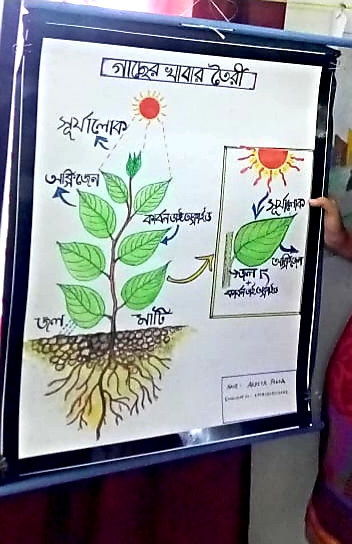 গাছের খাবার তৈরী
সূর্যালোক
অক্সিজেন
কার্বন ডাই অক্সাইড
জল
মাটি
সূর্যালোক
অক্সিজেন
জল
+
কার্বন ডাই অক্সাইড
NAME :